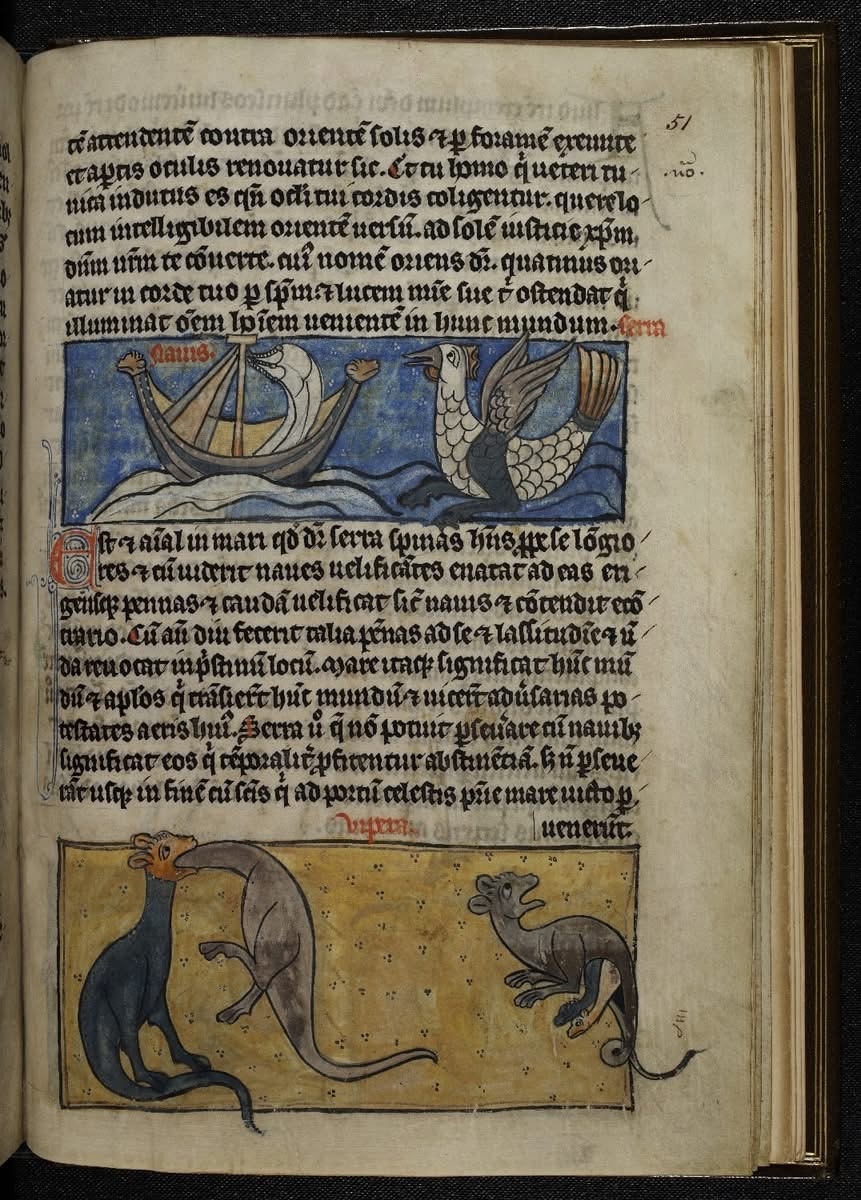 51
tē attendentē contra orientē solis ⁊ ꝑ foramē exeunte
et aꝑtis oculis renouatur sic. Et tu homo q̇ ueteri tu-
.no̅.
nica indutus es qn̄ ocl̓i tui cordis coligentur. quere lo-
cum intelligibilem orientē uersū. ad solē iusticie xp̄m
dn̄m nr̄m te cōuerte. cui᷒ nomē oriens dr̄. quatinus ori-
atur in corde tuo ꝑ sp̄m ⁊ lucem mīe sue t̄ ostendat q̇
illuminat om̄em ho̅i̅em uenientē in hunc mundum. serra
nauis.
Est ⁊ aīal in mari qd̄ dr̄ serra spinas hn̄s se lōgio-
res ⁊ cū uiderit naues uelificātes enatat ad eas eri-
gensq; pennas ⁊ caudā uelificat sic̄ nauis ⁊ cōtendit ecō-
trario. Cū aū diu fecerit talia pēnas ad se ⁊ lassitudīe ⁊ ū-
da reuocat in p̄stinū locū. Mare itaq; significat hūc mū-
dū ⁊ aplos q̇ trāsier̄t hūc mundū ⁊ uicer̄t adūsarias po-
testates aeris hui᷒. Serra ů q̄ nō potuit ꝑseůare cū nauibꝫ
significat eos q̇ tēꝑalit̄ ꝓfitentur abstinētiā. s; n̄ ꝑseue-
rāt usq; in finē cū sc̄is q̇ ad portū celestis pr̄ie mare uicto ꝑ-
uipera. uenerūt.